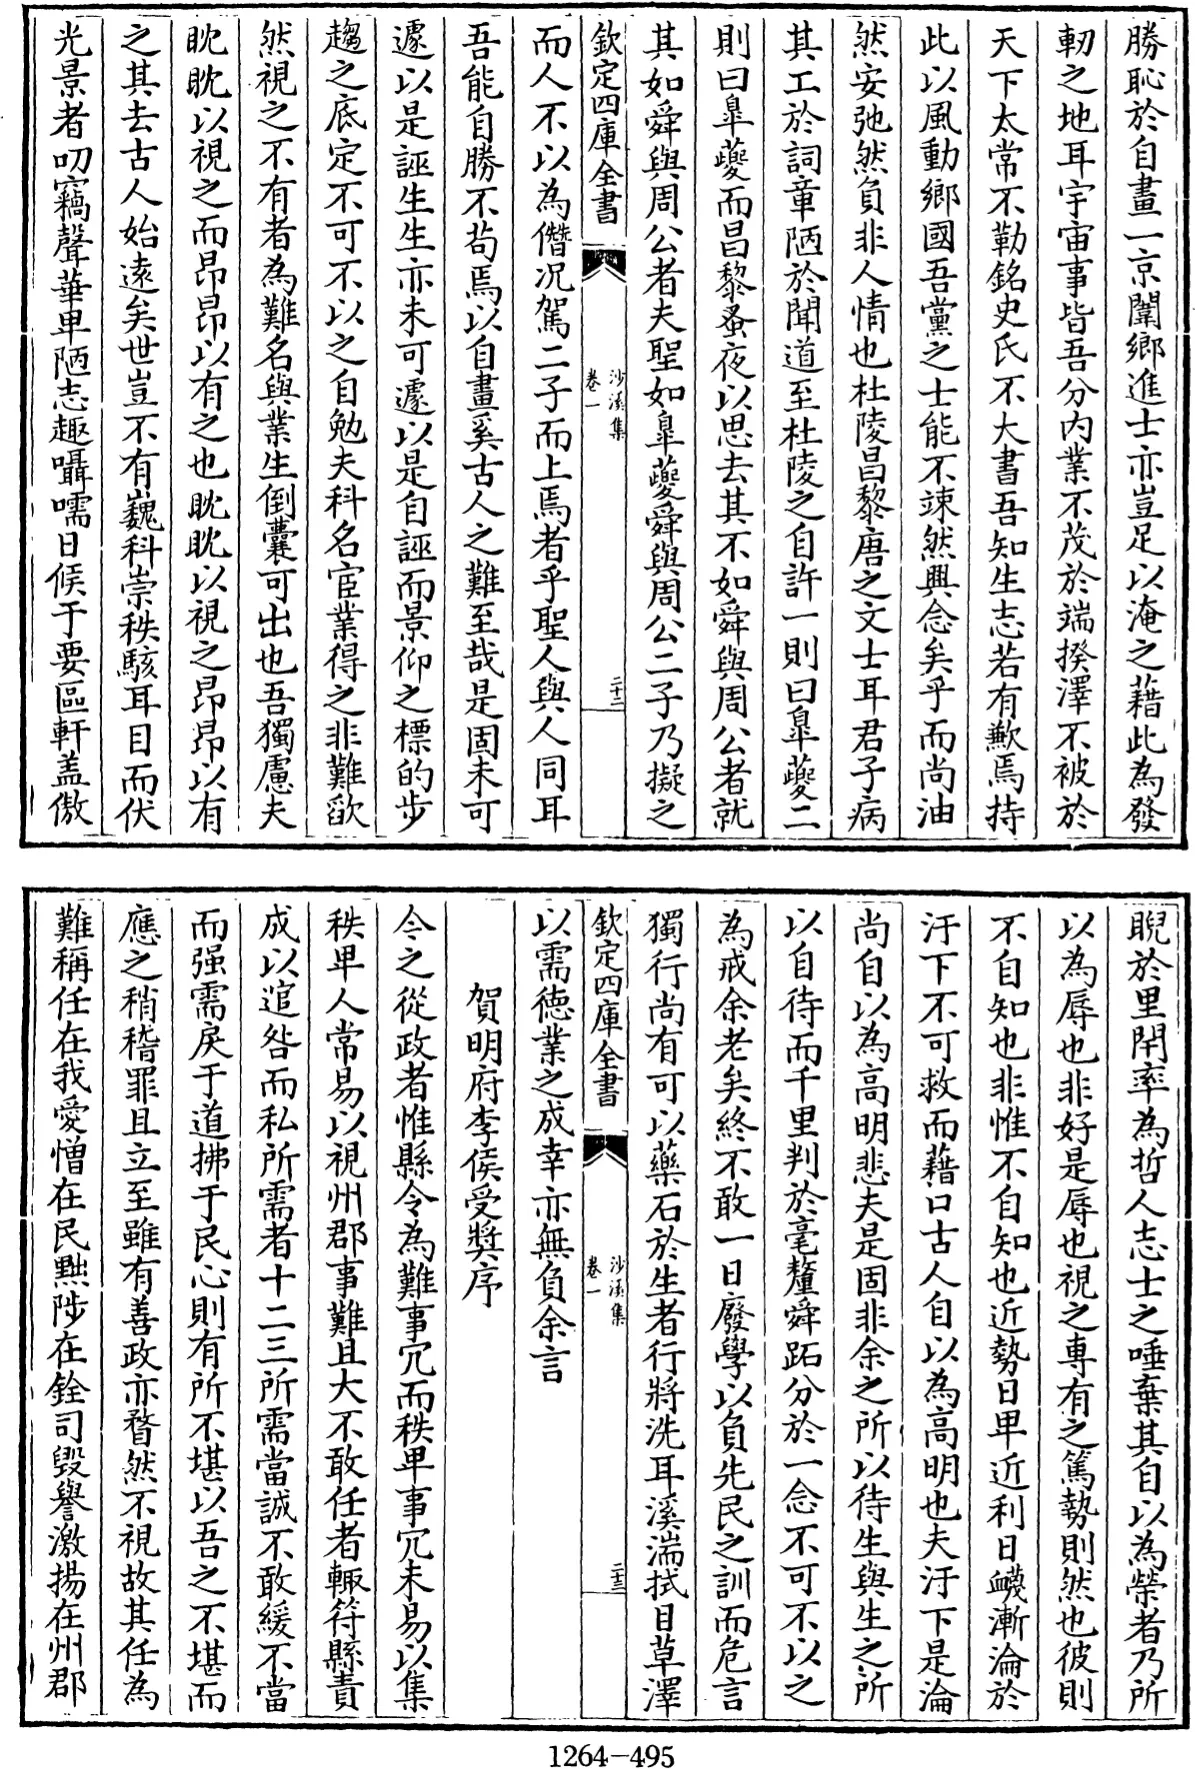 勝恥於自畫一京闈鄉進士亦豈足以淹之藉此為發
軔之地耳宇宙事皆吾分内業不茂於端揆澤不被於
天下太常不勒銘史氏不大書吾知生志若有歉焉持
此以風動鄉國吾黨之士能不竦然興念矣乎而尚油
然安弛然負非人情也杜陵昌黎唐之文士耳君子病
其工於詞章陋於聞道至杜陵之自許一則曰臯夔二
則曰臯夔而昌黎蚤夜以思去其不如舜與周公者就
其如舜與周公者夫聖如臯夔舜與周公二子乃擬之
欽定四庫全書
沙溪集
卷一
二十二
而人不以為僭况駕二子而上焉者乎聖人與人同耳
吾能自勝不苟焉以自畫奚古人之難至哉是固未可
遽以是誣生生亦未可遽以是自誣而景仰之標的步
趨之底定不可不以之自勉夫科名宦業得之非難欿
然視之不有者為難名與業生倒囊可出也吾獨慮夫
眈眈以視之而昂昂以有之也眈眈以視之昂昂以有
之其去古人始遠矣世豈不有巍科崇秩駭耳目而伏
光景者叨竊聲華卑陋志趣囁嚅日候于要區軒盖傲
睨於里閈率為哲人志士之唾棄其自以為榮者乃所
以為辱也非好是辱也視之專有之篤勢則然也彼則
不自知也非惟不自知也近勢日卑近利日衊漸淪於
汙下不可救而藉口古人自以為高明也夫汙下是淪
尚自以為高明悲夫是固非余之所以待生與生之所
以自待而千里判於毫釐舜跖分於一念不可不以之
為戒余老矣終不敢一日廢學以負先民之訓而危言
獨行尚有可以藥石於生者行將洗耳溪湍拭目草澤
欽定四庫全書
沙溪集
卷一
二十三
以需徳業之成幸亦無負余言
賀明府李侯受奬序
今之從政者惟縣令為難事冗而秩卑事冗未易以集
秩卑人常易以視州郡事難且大不敢任者輙符縣責
成以逭咎而私所需者十二三所需當誠不敢緩不當
而强需戾于道拂于民心則有所不堪以吾之不堪而
應之稍稽罪且立至雖有善政亦瞀然不視故其任為
難稱任在我愛憎在民黜陟在銓司毁譽激揚在州郡
1264-495